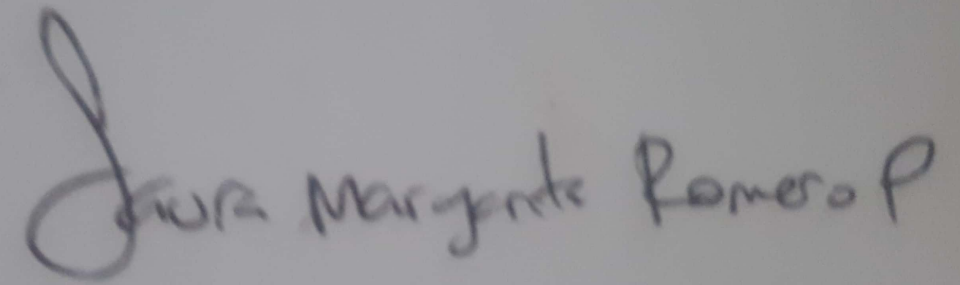 Laura Margarita Romero P